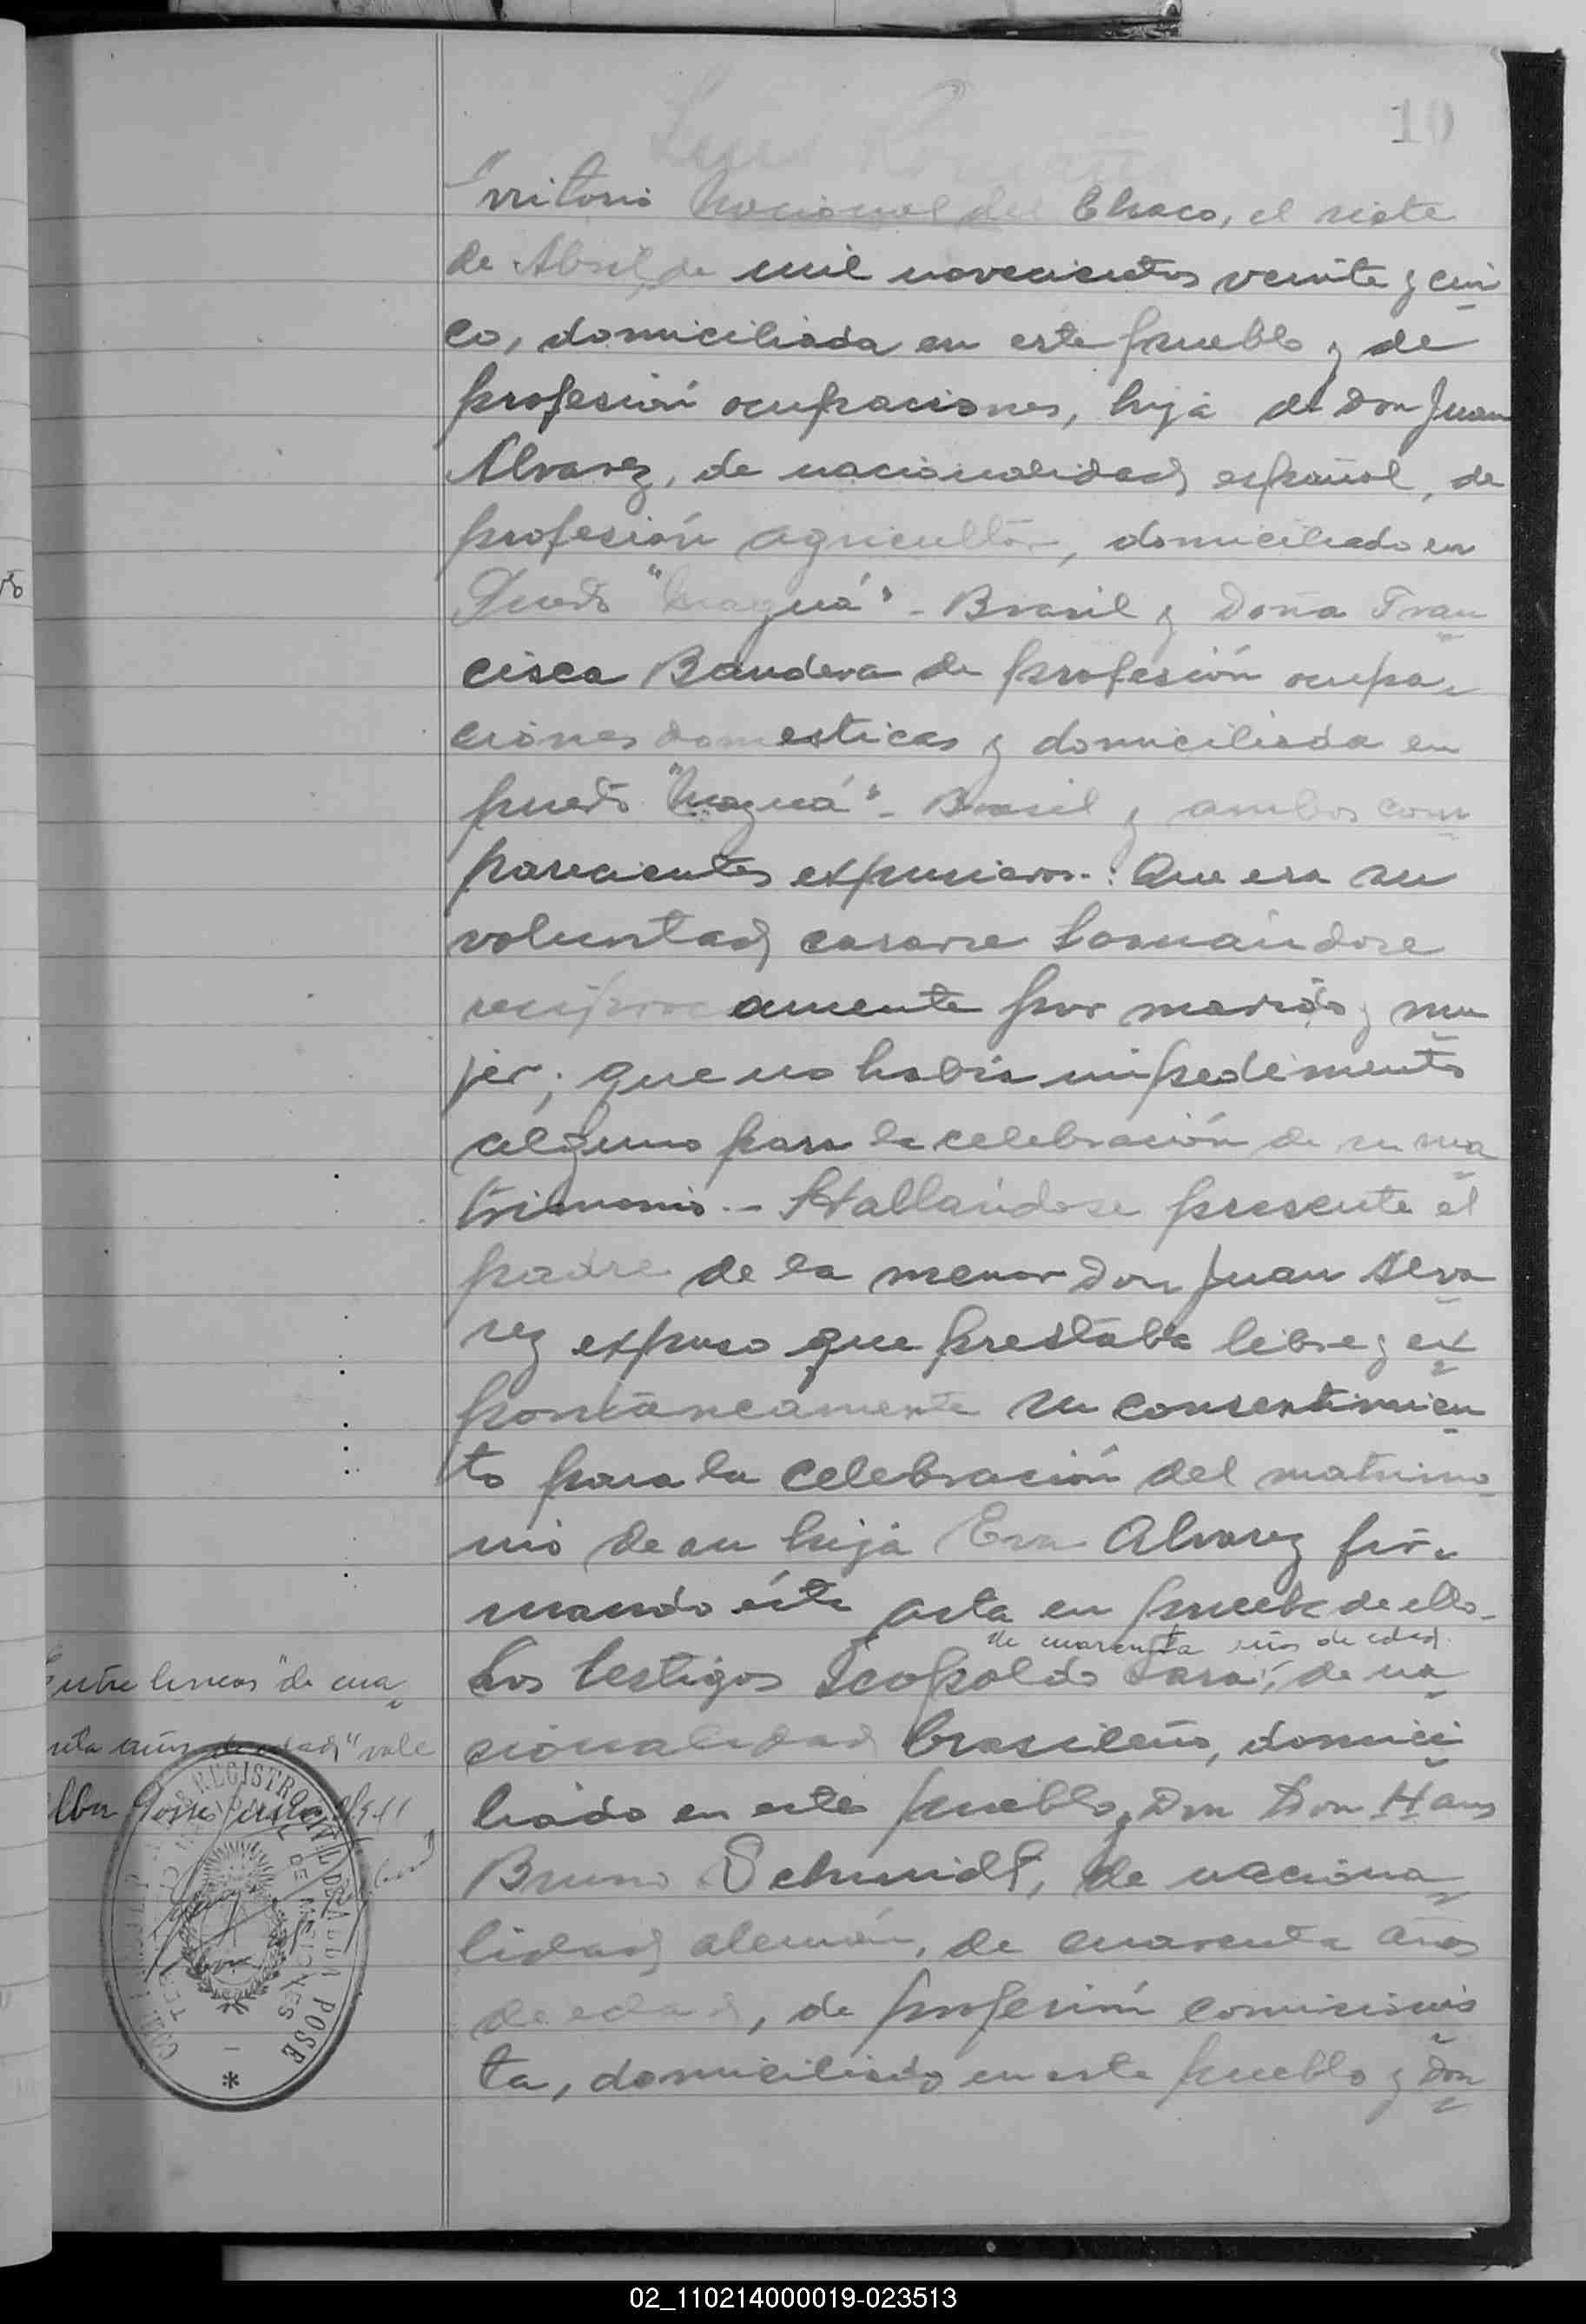 10
rritorio Nacional del Chaco, el siete
de Abril de mil novecientos veinte y cin
co, domiciliada en este pueblo y de
profesión ocupaciones, hija de don Juan
Alvarez, de nacionalidad español, de
profesión agricultor, domiciliado en
- Brasil y Doña Fran
cisca Bandera de profesión ocupa
ciones domesticas y domiciliada en
- Brasil y ambos com
parecientes expusieron: Que era su
voluntad casarse tomándose
reciprocamente por marido y mu
jer; que no habia impedimento
alguno para la celebración de su ma
trimonio.- Hallándose presente el
padre de la menor Don Juan Alva
rez expuso que prestaba libre y ex
pontáneamente su consentimien
to para la celebración del matrimo
nio de su hija Eva Alvarez fir
mando ésta acta en prueba de ello.
de cuarenta años de edad
Los testigos Leopoldo Lara, de na
cionalidad brasileño, domici
liado en este pueblo, Don Don Hans
Bruno Schmidt, de naciona
lidad alemán, de cuarenta años
de edad, de profesión comisionis
ta, domiciliado en este pueblo y Don
Entre lineas "de cua
renta años de edad" vale
REGISTRO CIVIL DE ALBA POSE
DE MISIONES
*
02_110214000019-023513